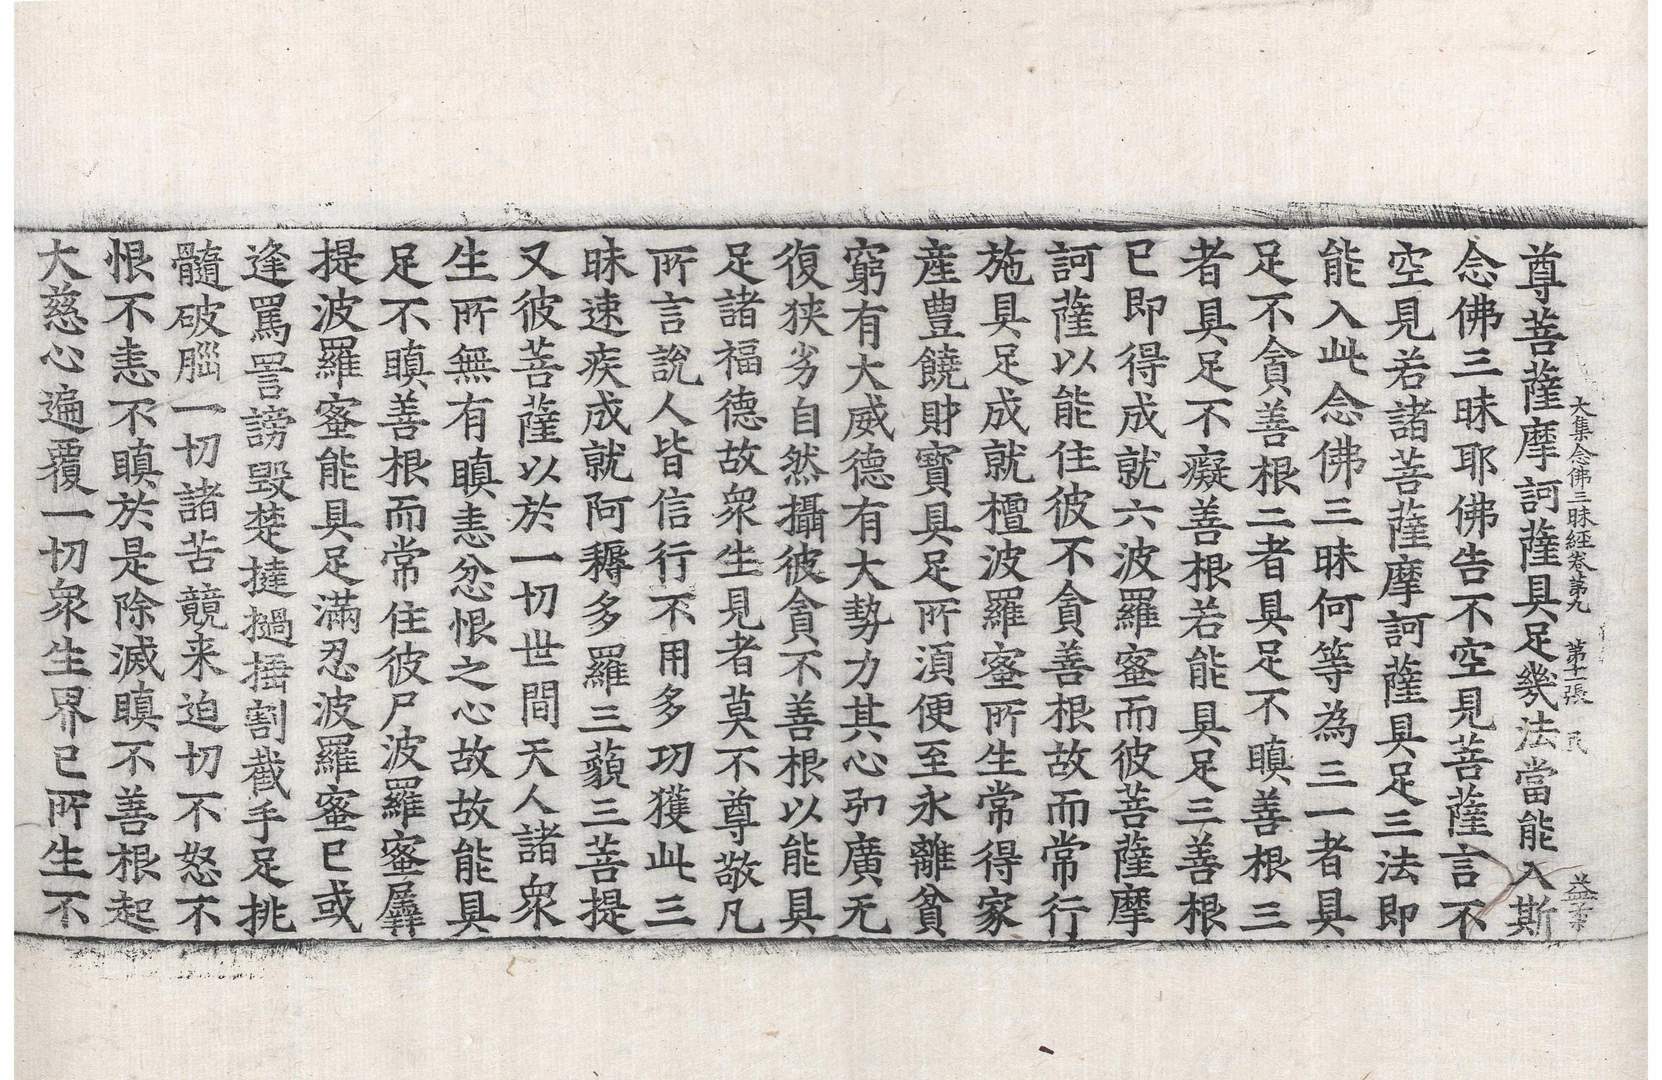 大集念佛三昧經卷第九 第十一張 民
尊菩薩摩訶薩具足幾法當能入斯
念佛三昧耶佛告不空見菩薩言不
空見若諸菩薩摩訶薩具足三法即
能入此念佛三昧何等為三一者具
足不貪善根二者具足不瞋善根三
者具足不癡善根若能具足三善根
已即得成就六波羅蜜而彼菩薩摩
訶薩以能住彼不貪善根故而常行
施具足成就檀波羅蜜所生常得家
產豊饒財寳具足所湏便至永離貧
窮有大威德有大勢力其心弘廣无
復狹劣自然攝彼貪不善根以能具
足諸福德故衆生見者莫不尊敬凡
所言說人皆信行不用多功獲此三
昧速疾成就阿耨多羅三藐三菩提
又彼菩薩以於一切世間天人諸衆
生所無有瞋恚忿恨之心故故能具
足不瞋善根而常住彼尸波羅蜜羼
提波羅蜜能具足滿忍波羅蜜已或
逢罵詈謗毀楚撻撾捶割截手足挑
髓破腦一切諸苦競来迫切不怒不
恨不恚不瞋於是除滅瞋不善根起
大慈心遍覆一切衆生界已所生不